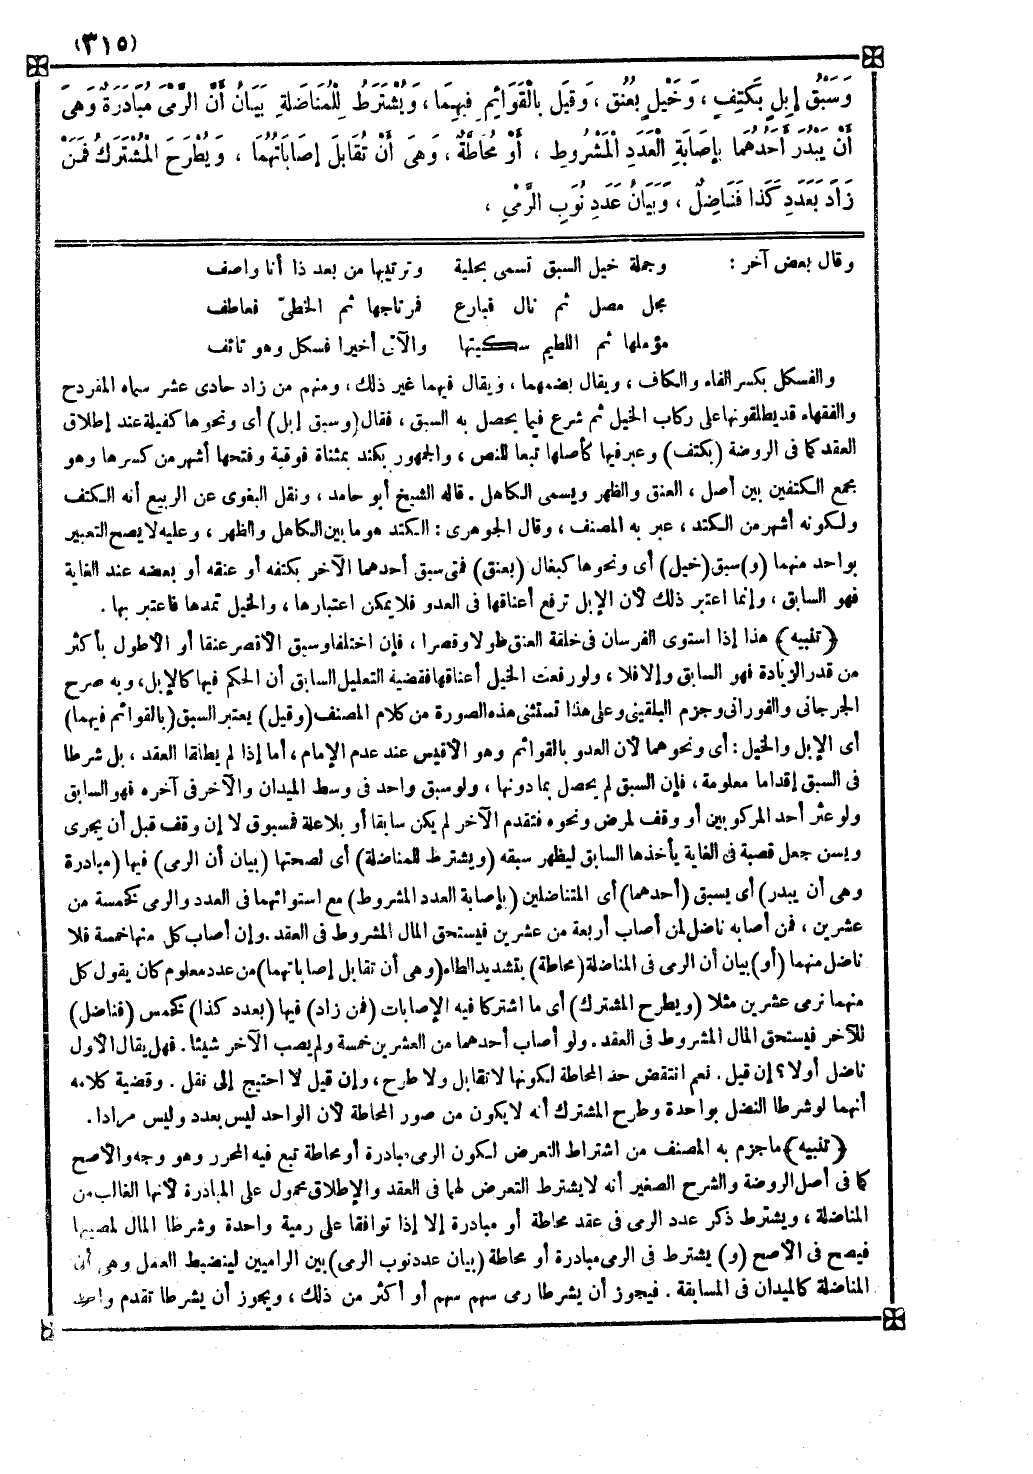 (٣١٥)
وَسَبْقُ إِبِلٍ بِكَتِفٍ ، وَخَيْلٍ بِعُنُقٍ ، وَقِيلَ بِالْقَوَائِمِ فِيهِمَا ، وَيُشْتَرَطُ لِلْمُنَاضَلَةِ بَيَانُ أَنَّ الرَّمْىَ مُبَادَرَةٌ وَهِىَ
أَنْ يَبْدُرَ أَحَدُهُمَا بِإِصَابَةِ الْعَدَدِ الْمَشْرُوطِ ، أَوْ مُحَاطَّةٌ ، وَهِىَ أَنْ تُقَابَلَ إِصَابَاتُهُمَا ، وَيُطْرَحَ الْمُشْتَرَكُ فَمَنْ
زَادَ بِعَدَدِ كَذَا فَنَاضِلٌ ، وَبَيَانُ عَدَدِ نُوَبِ الرَّمْىِ ،
وقال بعض آخر : وجملة خيل السبق تسمى بحلبة وترتيبها من بعد ذا أنا واصف
مجل مصل ثم تال فبارع فمرتاحها ثم الخطىّ فعاطف
مؤملها ثم اللطيم سكيتها والآتى أخيرا فسكل وهو تائف
والفسكل بكسر الفاء والكاف ، ويقال بضمهما ، ويقال فيهما غير ذلك ، ومنهم من زاد حادى عشر سماه المفردح
والفقهاء قد يطلقونها على ركاب الخيل ثم شرع فيما يحصل به السبق ، فقال (وسبق إبل) أى ونحوها كفيلة عند إطلاق
العقد كما فى الروضة (بكتف) وعبر فيها كأصلها تبعا للنص ، والجمهور بكتد بمثناة فوقية وفتحها أشهر من كسرها وهو
مجمع الكتفين بين أصل ، العنق والظهر ويسمى الكاهل . قاله الشيخ أبو حامد ، ونقل البغوى عن الربيع أنه الكتف
ولكونه أشهر من الكتد ، عبر به المصنف ، وقال الجوهرى : الكتد هو مابين الكاهل والظهر ، وعليه لا يصح التعبير
بواحد منهما (و) سبق (خيل) أى ونحوها كبغال (بعنق) فمتى سبق أحدهما الآخر بكتفه أو عنقه أو بعضه عند الغاية
فهو السابق ، وإنما اعتبر ذلك لأن الإبل ترفع أعناقها فى العدو فلا يمكن اعتبارها ، والخيل تمدها فاعتبر بها .
﴿تنبيه﴾ هذا إذا استوى الفرسان فى خلقة العنق طولا وقصرا ، فإن اختلفا وسبق الأقصر عنقا أو الأطول بأكثر
من قدر الزيادة فهو السابق وإلا فلا ، ولو رفعت الخيل أعناقها فقضية التعليل السابق أن الحكم فيها كالإبل ، وبه صرح
الجرجانى والفورانى وجزم البلقينى وعلى هذا تستثنى هذه الصورة من كلام المصنف (وقيل) يعتبر السبق (بالقوائم فيهما)
أى الإبل والخيل : أى ونحوهما لأن العدو بالقوائم وهو الأقيس عند عدم الإمام ، أما إذا لم يطلقا العقد ، بل شرطا
فى السبق إقداما معلومة ، فإن السبق لم يحصل بما دونها ، ولو سبق واحد فى وسط الميدان والآخر فى آخره فهو السابق
ولو عثر أحد المركوبين أو وقف لمرض ونحوه فتقدم الآخر لم يكن سابقا أو بلا علة فمسبوق لا إن وقف قبل أن يجرى
ويسن جعل قصبة فى الغاية يأخذها السابق ليظهر سبقه (ويشترط للمناضلة) أى لصحتها (بيان أن الرمى) فيها (مبادرة
وهى أن يبدر) أى يسبق (أحدهما) أى المتناضلين (بإصابة العدد المشروط) مع استوائهما فى العدد والرمى كخمسة من
عشرين ، فمن أصابه ناضل لمن أصاب أربعة من عشرين فيستحق المال المشروط فى العقد . وإن أصاب كل منهما خمسة فلا
ناضل منهما (أو) بيان أن الرمى فى المناضلة (محاطة) بتشديد الطاء (وهى أن تقابل إصاباتهما) من عدد معلوم كان يقول كل
منهما نرمى عشرين مثلا (ويطرح المشترك) أى ما اشتركا فيه الإصابات (فمن زاد) فيها (بعدد كذا) كخمس (فناضل)
للآخر فيستحق المال المشروط فى العقد . ولو أصاب أحدهما من العشرين خمسة ولم يصب الآخر شيئا . فهل يقال الأول
ناضل أولا ؟ إن قيل . نعم انتقض حد المحاطة لكونها لا تقابل ولا طرح ، وإن قيل لا احتيج إلى نقل . وقضية كلامه
أنهما لو شرطا النضل بواحدة وطرح المشترك أنه لا يكون من صور المحاطة لأن الواحد ليس بعدد وليس مرادا .
﴿تنبيه﴾ ماجزم به المصنف من اشتراط التعرض لكون الرمى مبادرة أو محاطة تبع فيه المحرر وهو وجه والأصح
كما فى أصل الروضة والشرح الصغير أنه لا يشترط التعرض لهما فى العقد والإطلاق محمول على المبادرة لأنها الغالب من
المناضلة ، ويشترط ذكر عدد الرمى فى عقد محاطة أو مبادرة إلا إذا توافقا على رمية واحدة وشرطا المال لمصيبها
فيصح فى الأصح (و) يشترط فى الرمى مبادرة أو محاطة (بيان عدد نوب الرمى) بين الراميين لينضبط العمل وهى أن
المناضلة كالميدان فى المسابقة . فيجوز أن يشرطا رمى سهم سهم أو أكثر من ذلك ، ويجوز أن يشرطا تقدم واحد